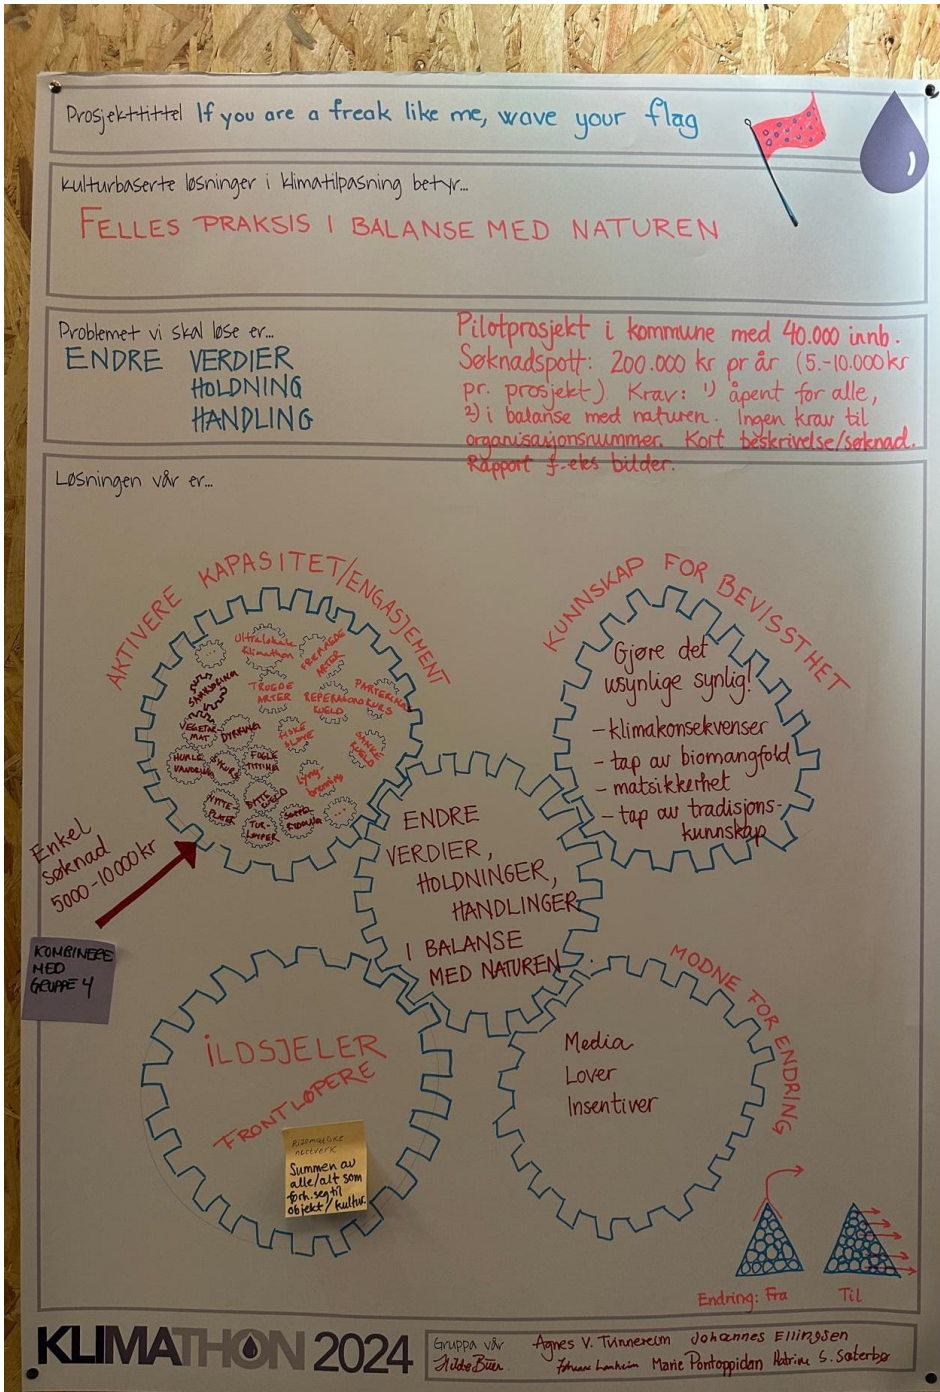 Prosjekttittel If you are a freak like me, wave your flag
Kulturbaserte løsninger i klimatilpasning betyr...
FELLES PRAKSIS I BALANSE MED NATUREN
Problemet vi skal løse er...
ENDRE VERDIER
HOLDNING
HANDLING
Pilotprosjekt i kommune med 40.000 innb.
Søknadspott: 200.000 kr pr år (5.-10.000 kr
pr. prosjekt) Krav: 1) åpent for alle,
2) i balanse med naturen. Ingen krav til
organisasjonsnummer. Kort beskrivelse/søknad.
Rapport f.eks bilder.
Løsningen vår er...
AKTIVERE KAPASITET/ENGASJEMENT
...
Ultralokale
klimathon
FREMMEDE
ARTER
SANKING
TRUEDE
ARTER
REPERASJONS
KVELD
PARTERINGS
KURS
VEGETAR
MAT
DYRKING
FISKE
SLØYE
SANKE
KVELD
HUMLE
VANDRING
SYKURS
FUGLE
TITTING
Lyng-
brenning
BYTTE
KVELD
TUR-
LØYPER
SOPPE
...
Enkel
søknad
5000-10000kr
KOMBINERE
MED
GRUPPE 4
KUNNSKAP FOR BEVISSTHET
Gjøre det
usynlige synlig!
- klimakonsekvenser
- tap av biomangfold
- matsikkerhet
- tap av tradisjons-
kunnskap
ENDRE
VERDIER,
HOLDNINGER,
HANDLINGER
I BALANSE
MED NATUREN
ILDSJELER
FRONTLØPERE
Rizomatiske
nettverk
Summen av
alle/alt som
forh. seg til
objekt/kultur.
MODNE FOR ENDRING
Media
Lover
Insentiver
Endring: Fra Til
KLIMATHON 2024
Gruppa vår
Agnes V. Tvinnereim Johannes Ellingsen
Marie Pontoppidan Katrine S. Sæterbø